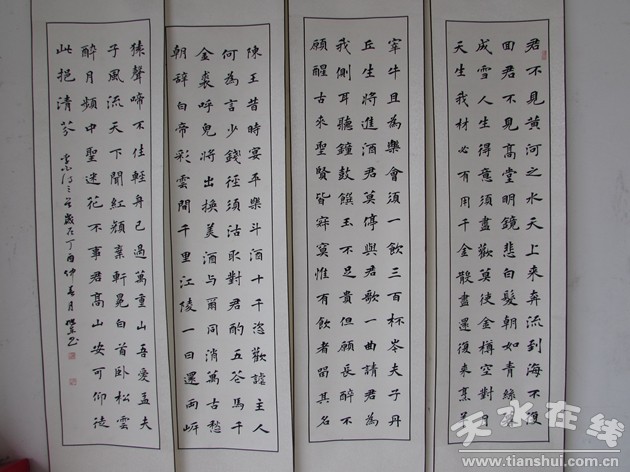 君不見黃河之水天上來奔流到海不復
回君不見高堂明鏡悲白髮朝如青絲暮
成雪人生得意須盡歡莫使金樽空對月
天生我材必有用千金散盡還復來烹羊
宰牛且為樂會須一飲三百杯岑夫子丹
丘生將進酒君莫停與君歌一曲請君為
我側耳聽鐘鼓饌玉不足貴但願長醉不
願醒古來聖賢皆寂寞惟有飲者留其名
陳王昔時宴平樂斗酒十千恣歡謔主人
何為言少錢徑須沽取對君酌五花馬千
金裘呼兒將出換美酒與爾同消萬古愁
朝辭白帝彩雲間千里江陵一日還兩岸
猿聲啼不住輕舟已過萬重山吾愛孟夫
子風流天下聞紅顏棄軒冕白首臥松雲
醉月頻中聖迷花不事君高山安可仰徒
此挹清芬 李白詩三首歲在丁酉仲春月
天水在线
www.tianshui.com.cn